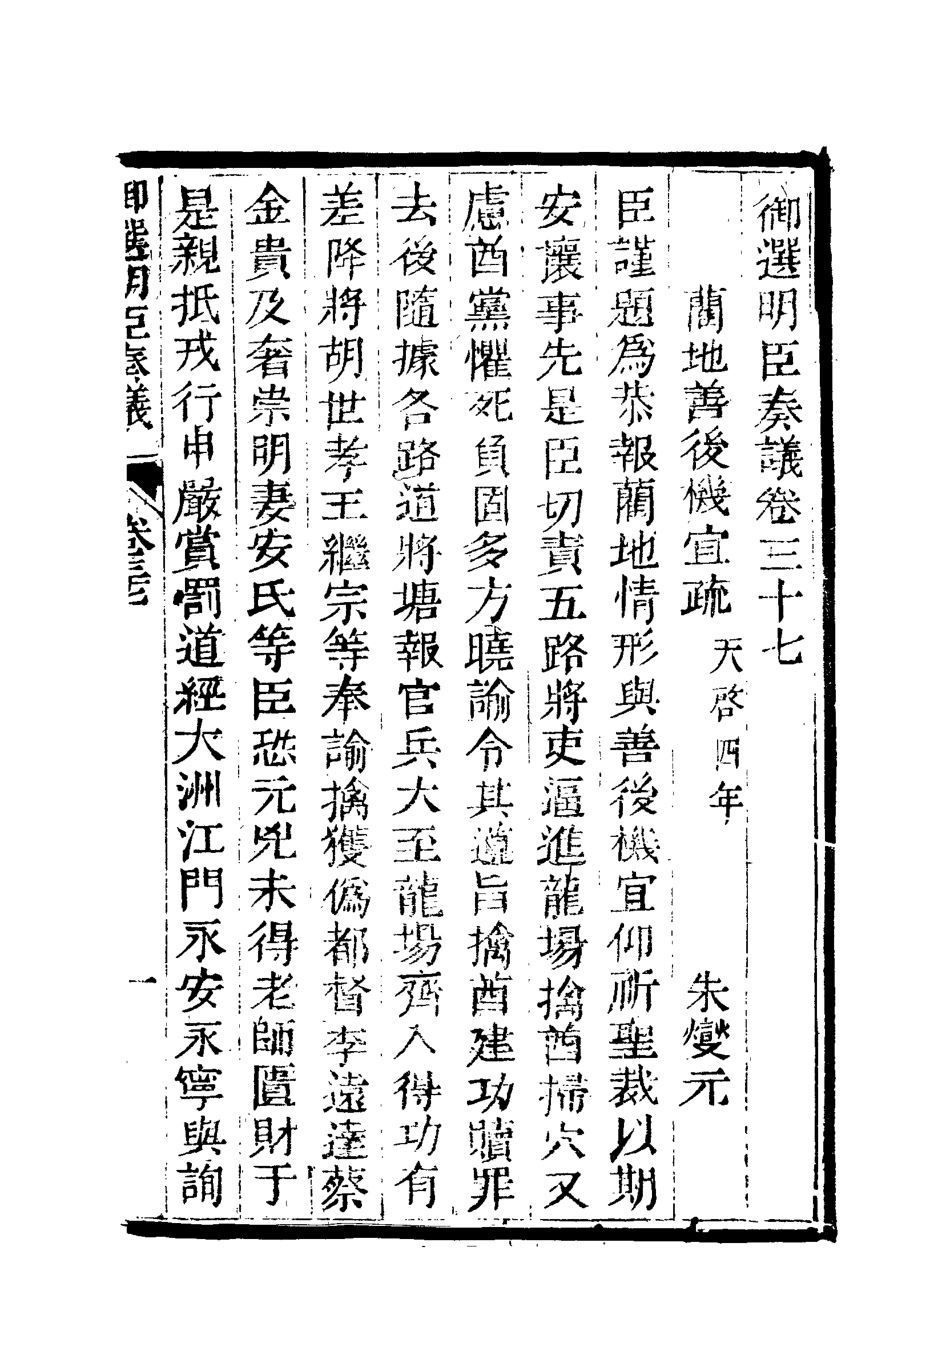 御選明臣奏議卷三十七
藺地善後機宜疏 天啓四年 朱燮元
臣謹題爲恭報藺地情形與善後機宜仰祈聖裁以期
安攘事先是臣切責五路將吏逼進龍場擒酋掃穴又
慮酋黨懼死負固多方曉諭令其遵旨擒酋建功贖罪
去後隨據各路道將塘報官兵大至龍場齊入得功有
差降將胡世孝王繼宗等奉諭擒獲僞都督李遠達蔡
金貴及奢崇明妻安氏等臣恐元兇未得老師匱財于
是親抵戎行申嚴賞罰道經大洲江門永安永寧與詢
御選明臣奏議 卷三十七 一